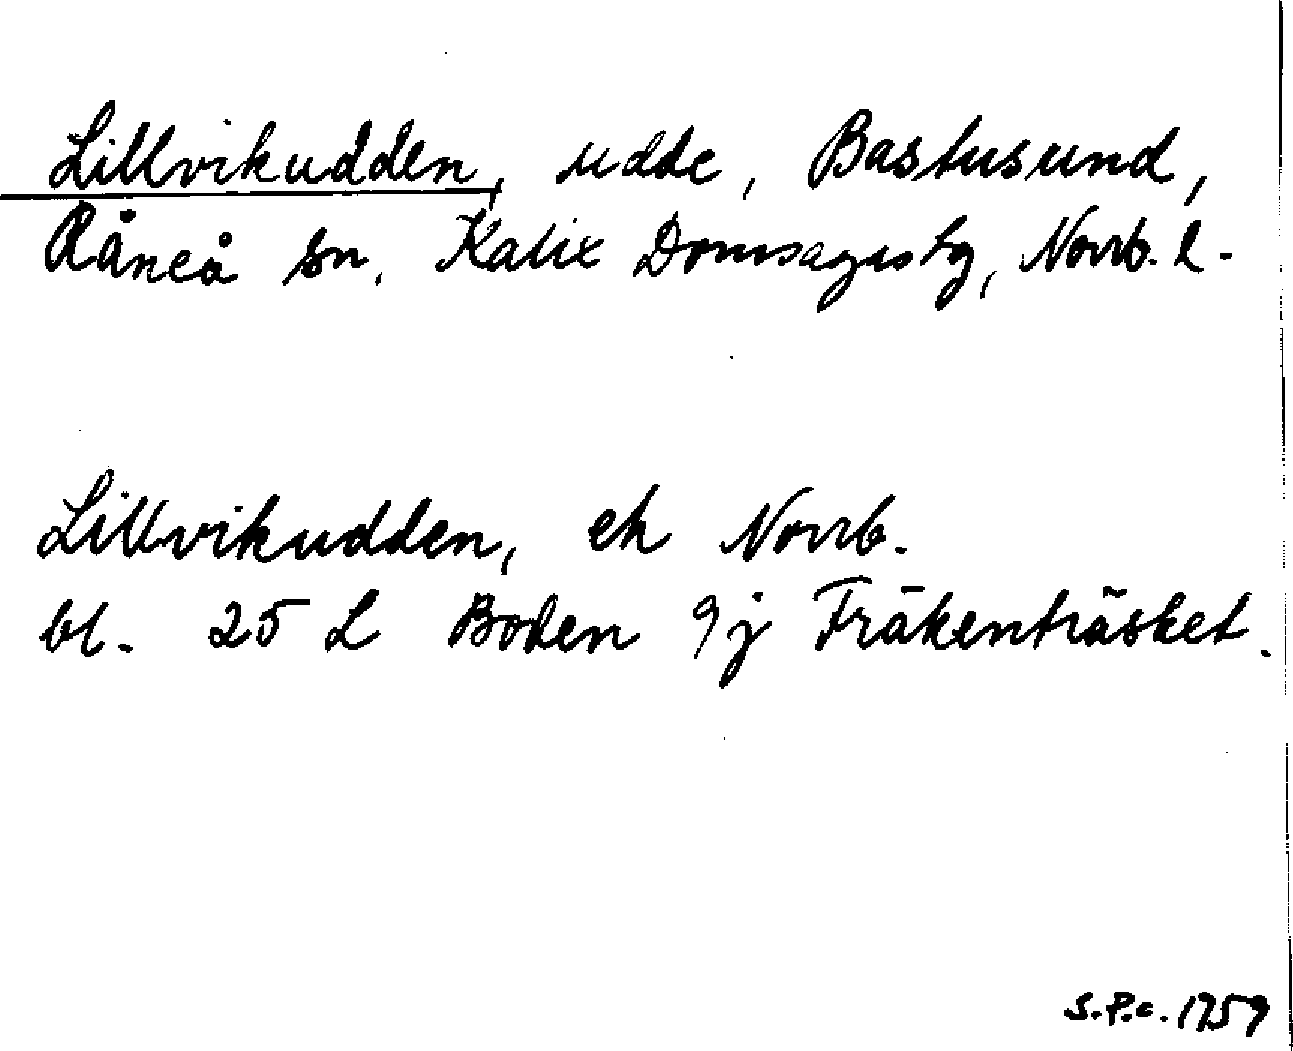 Lillvikudden, udde, Bastusund,
Råneå sn, Kalix Domsagas tg, Norrb. l.
Lillvikudden, ek Norrb.
bl. 25 L Boden 9j Fräkenträsket.
S.P.c. 1759